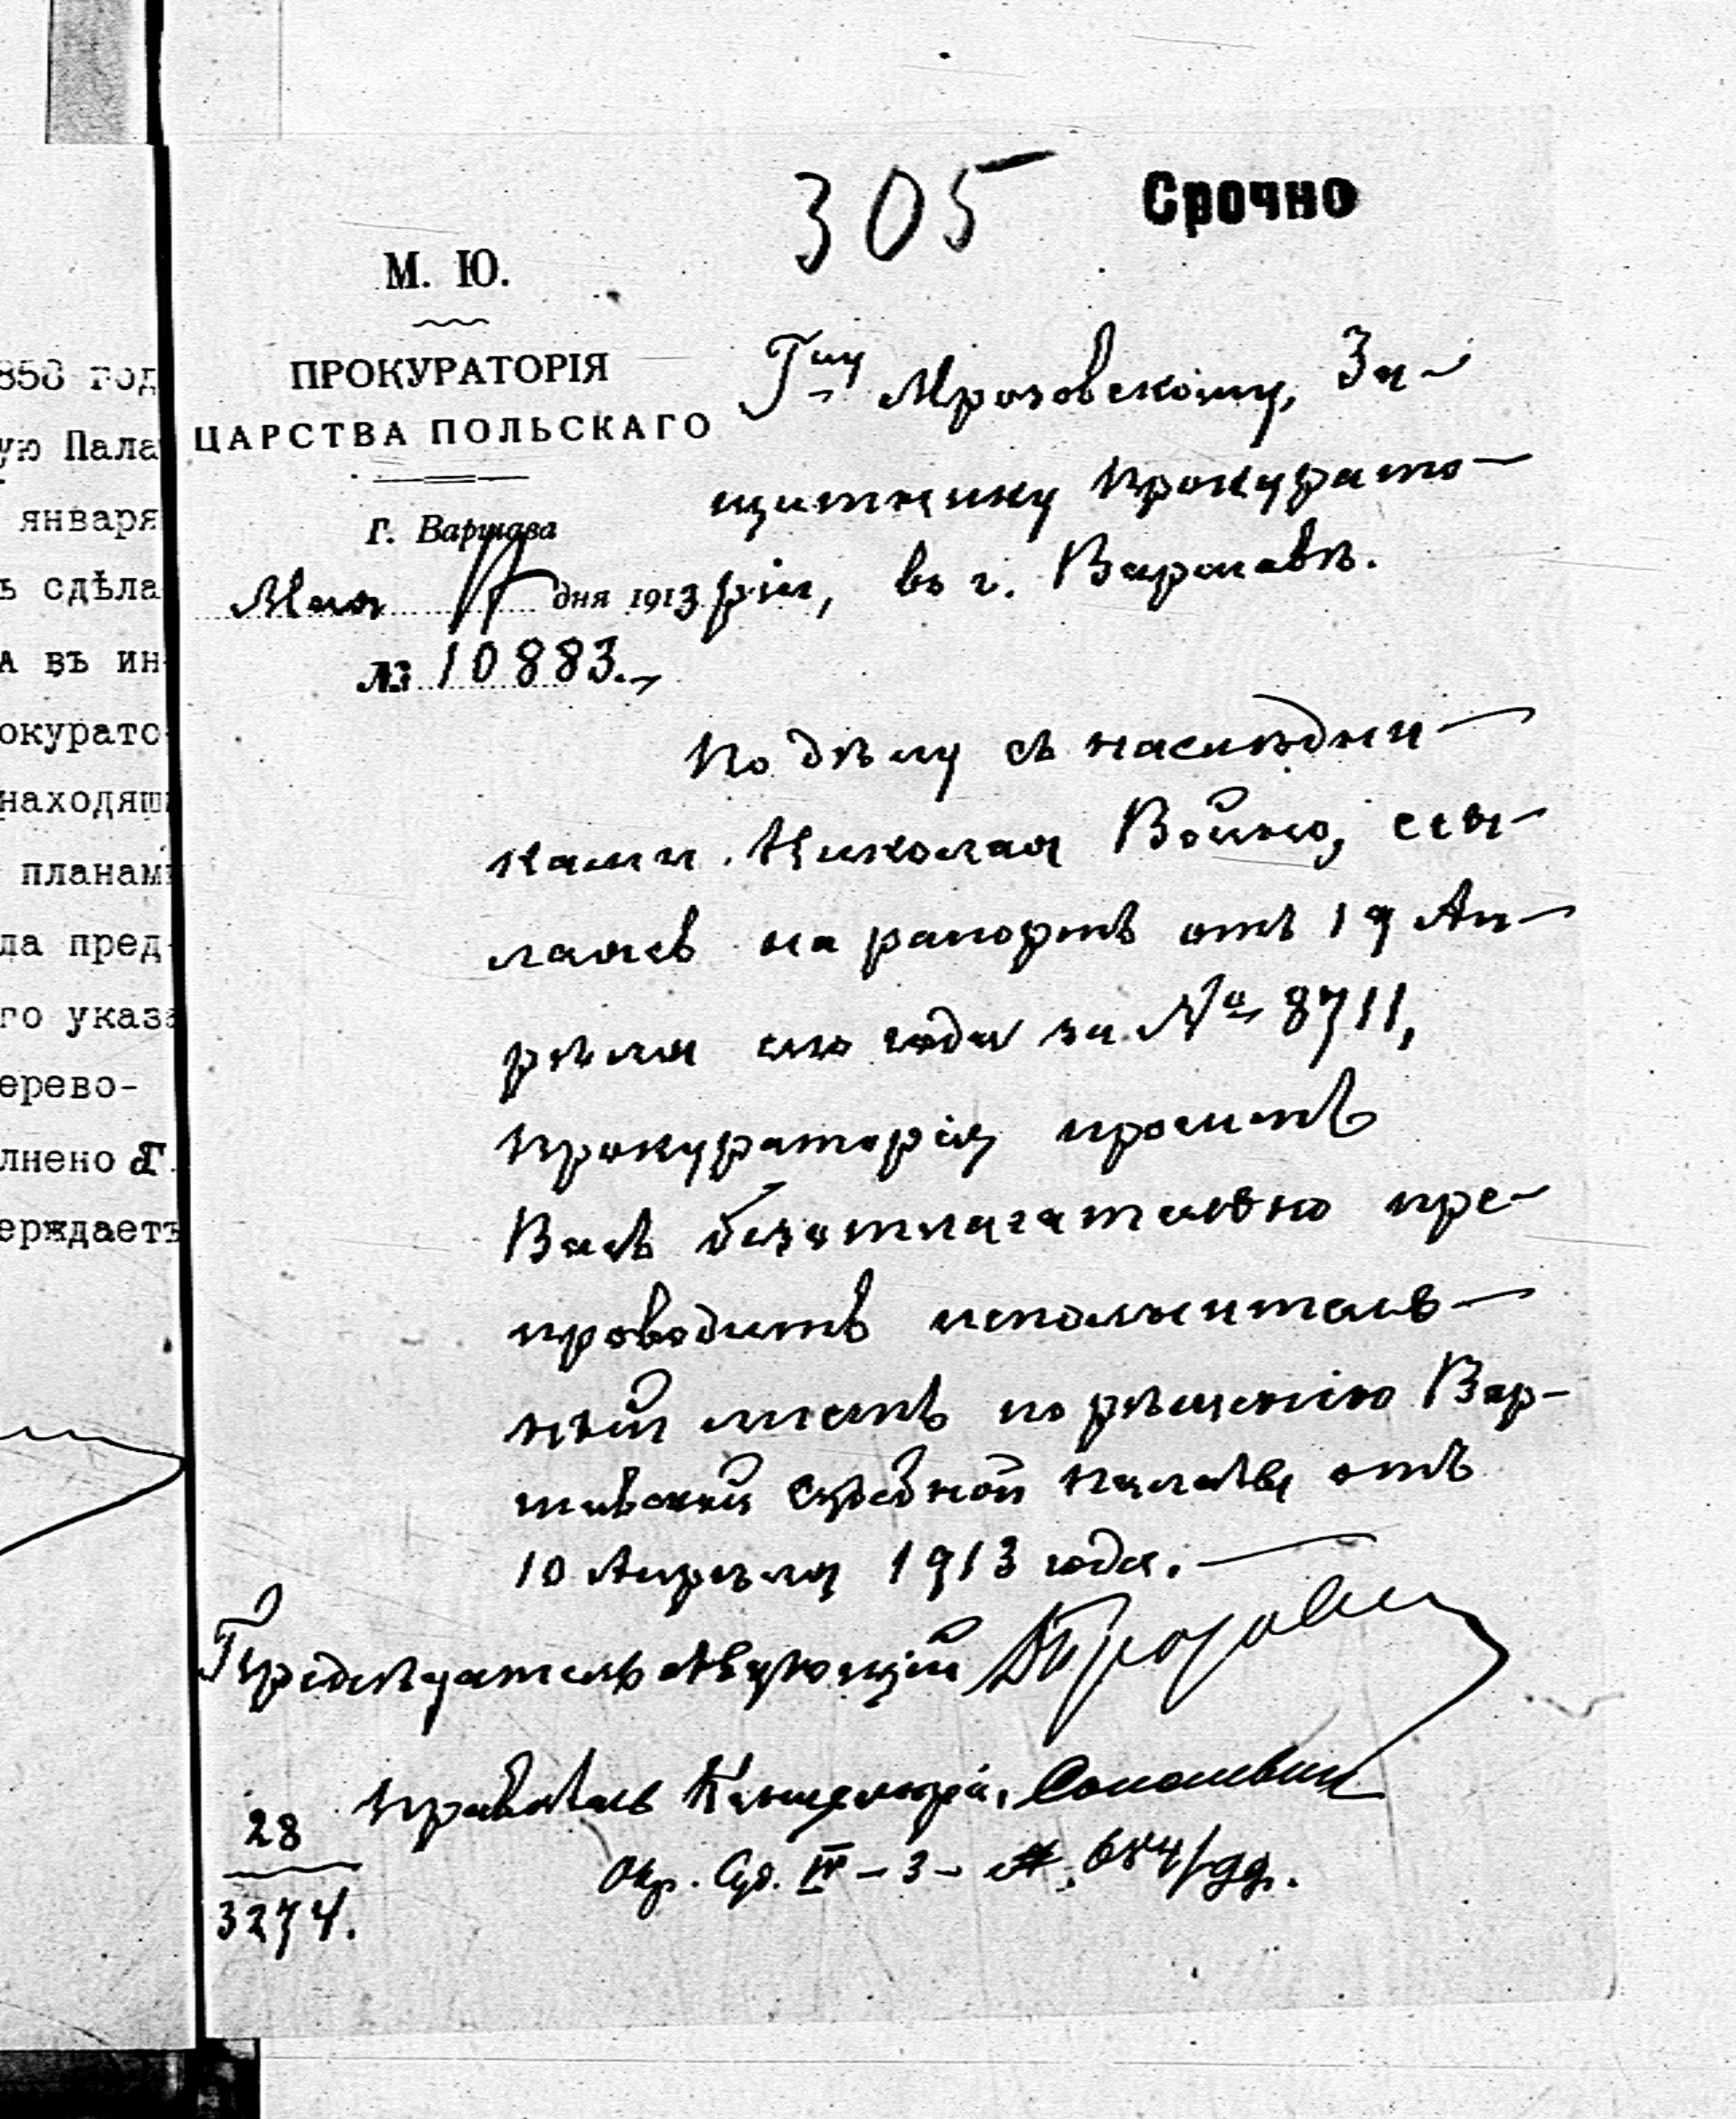 858 год
ую Пала
января
ъ сдѣла
А въ ин-
окурато-
находящ
планам
ла пред-
го указа
ерево-
лнено
ерждаетъ
305
Срочно
М. Ю.
ПРОКУРАТОРІЯ
ЦАРСТВА ПОЛЬСКАГО
г. Варшава
Мая дня 1913
№ 10883.
Г-ну Мрозовскому, За-
щитнику Прокурато-
ріи, въ г. Варшавѣ.
По дѣлу съ наслѣдни-
ками Николая Войно, ссы-
лаясь на рапортъ отъ 19 Ап-
рѣля сего года за № 8711,
Прокураторія проситъ
Васъ безотлагательно пре-
проводить исполнитель-
ный листъ по рѣшенію Вар-
шавской Судебной Палаты отъ
10 Апрѣля 1913 года.
Предсѣдательствующій
Правитель Канцеляріи,
28
3274.
Окр. Суд. IV - 3 - 684/99.